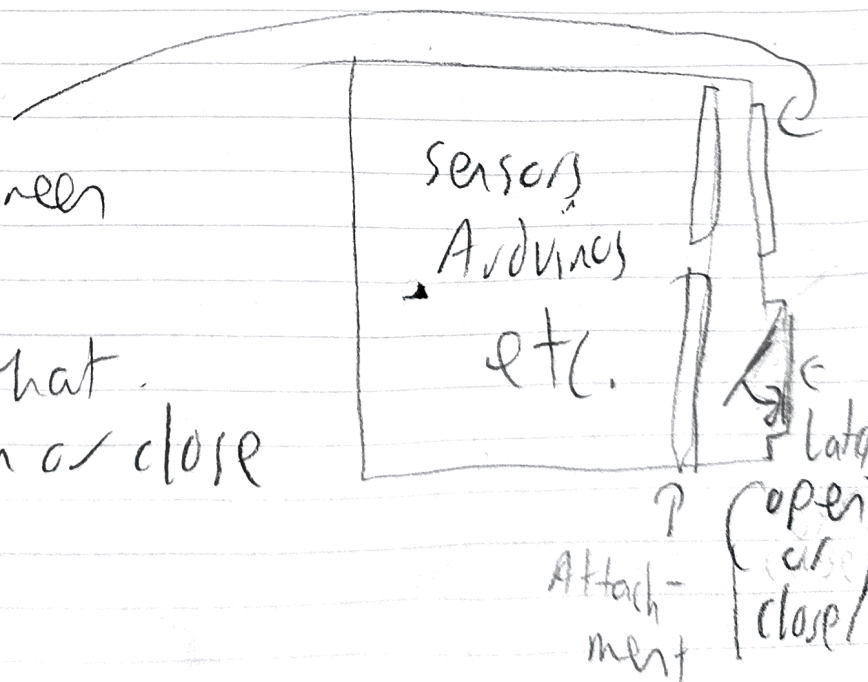 reen
hat.
n or close
sensors
Arduinos
etc.
Attach-
ment
Latc
(open
or
close)